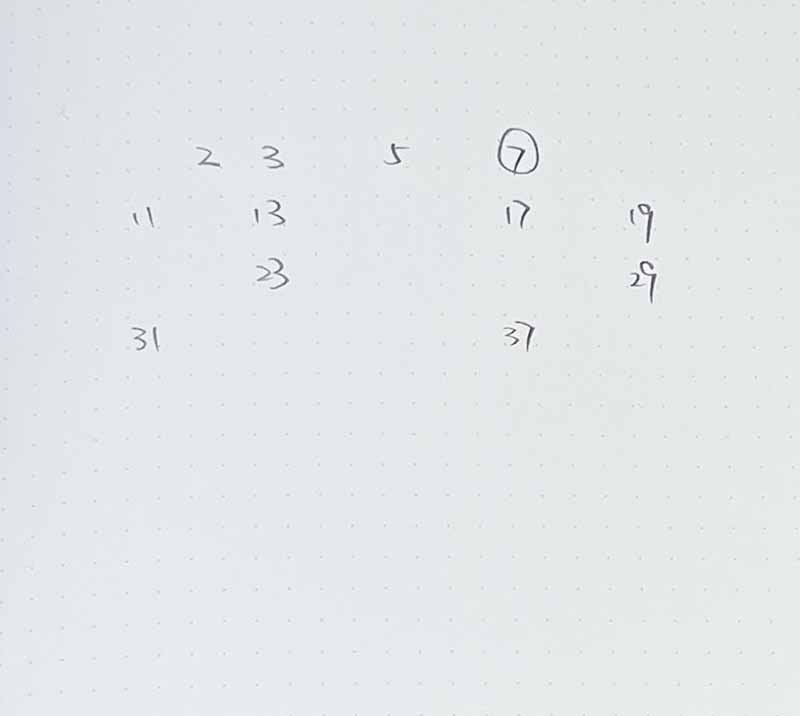 2 3 5 7
11 13 17 19
23 29
31 37